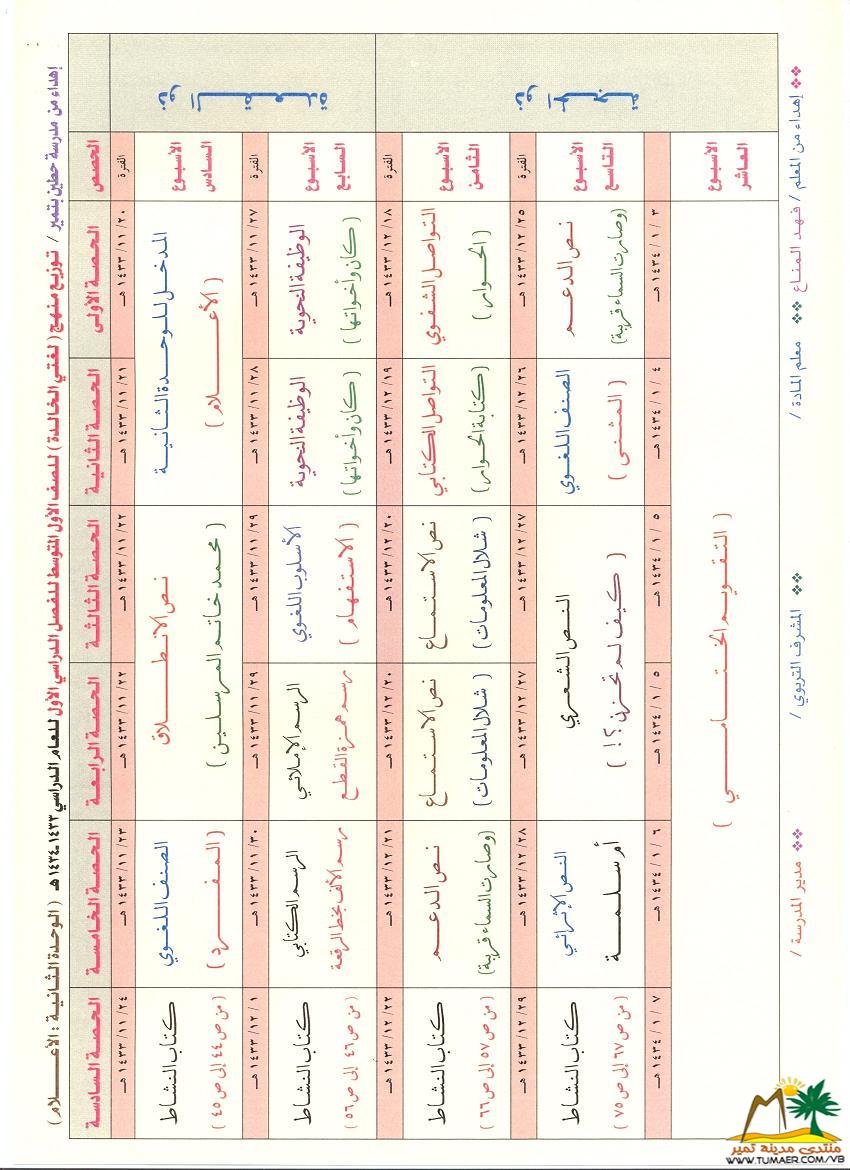 إهداء من مدرسة حطين بتمير / توزيع منهج ( لغتي الخالدة ) للصف الأول المتوسط للفصل الدراسي الأول للعام الدراسي ١٤٣٣ـ١٤٣٤هـ ( الوحدة الثانية : الأعـــلام )
الحصص الحصة الأولى الحصة الثانية الحصة الثالثة الحصة الرابعة الحصة الخامسة الحصة السادسة
ذو القعدة
الفترة ٢٠/ ١١/ ١٤٣٣ هـ ٢١/ ١١/ ١٤٣٣ هـ ٢٢/ ١١/ ١٤٣٣ هـ ٢٢/ ١١/ ١٤٣٣ هـ ٢٣/ ١١/ ١٤٣٣ هـ ٢٤/ ١١/ ١٤٣٣ هـ
الأسبوع المدخل للوحدة الثانية نص الانطلاق الصنف اللغوي كتاب النشاط
السادس ( الأعــلام ) ( محمد خاتم المرسلين ) ( المفرد ) ( من ص ٤٤ إلى ص ٤٥ )
الفترة ٢٧/ ١١/ ١٤٣٣ هـ ٢٨/ ١١/ ١٤٣٣ هـ ٢٩/ ١١/ ١٤٣٣ هـ ٢٩/ ١١/ ١٤٣٣ هـ ٣٠/ ١١/ ١٤٣٣ هـ ١/ ١٢/ ١٤٣٣ هـ
الأسبوع الوظيفة النحوية الوظيفة النحوية الأسلوب اللغوي الرسم الإملائي الرسم الكتابي كتاب النشاط
السابع ( كان وأخواتها ) ( كان وأخواتها ) ( الاستفهام ) رسم همزة القطع رسم الألف بخط الرقعة ( من ص ٤٦ إلى ص ٥٦ )
ذو الحجة
الفترة ١٨/ ١٢/ ١٤٣٣ هـ ١٩/ ١٢/ ١٤٣٣ هـ ٢٠/ ١٢/ ١٤٣٣ هـ ٢٠/ ١٢/ ١٤٣٣ هـ ٢١/ ١٢/ ١٤٣٣ هـ ٢٢/ ١٢/ ١٤٣٣ هـ
الأسبوع التواصل الشفوي التواصل الكتابي نص الاستماع نص الاستماع نص الدعم كتاب النشاط
الثامن ( الحوار ) ( كتابة الحوار ) ( شلال المعلومات ) ( شلال المعلومات ) ( وصارت السماء قريبة ) ( من ص ٥٧ إلى ص ٦٦ )
الفترة ٢٥/ ١٢/ ١٤٣٣ هـ ٢٦/ ١٢/ ١٤٣٣ هـ ٢٧/ ١٢/ ١٤٣٣ هـ ٢٧/ ١٢/ ١٤٣٣ هـ ٢٨/ ١٢/ ١٤٣٣ هـ ٢٩/ ١٢/ ١٤٣٣ هـ
الأسبوع نص الدعم الصنف اللغوي النص الشعري النص الإثرائي كتاب النشاط
التاسع ( وصارت السماء قريبة ) ( المثنى ) ( كيف لم تحزن ؟! ) أم سلمة ( من ص ٦٧ إلى ص ٧٥ )
٣/ ١/ ١٤٣٤ هـ ٤/ ١/ ١٤٣٤ هـ ٥/ ١/ ١٤٣٤ هـ ٥/ ١/ ١٤٣٤ هـ ٦/ ١/ ١٤٣٤ هـ ٧/ ١/ ١٤٣٤ هـ
الأسبوع
العاشر ( التقويم الختامي )
إهداء من المعلم / فهد المناع معلم المادة / المشرف التربوي / مدير المدرسة /
منتدى مدينة تمير
WWW.TUMAER.COM/VB